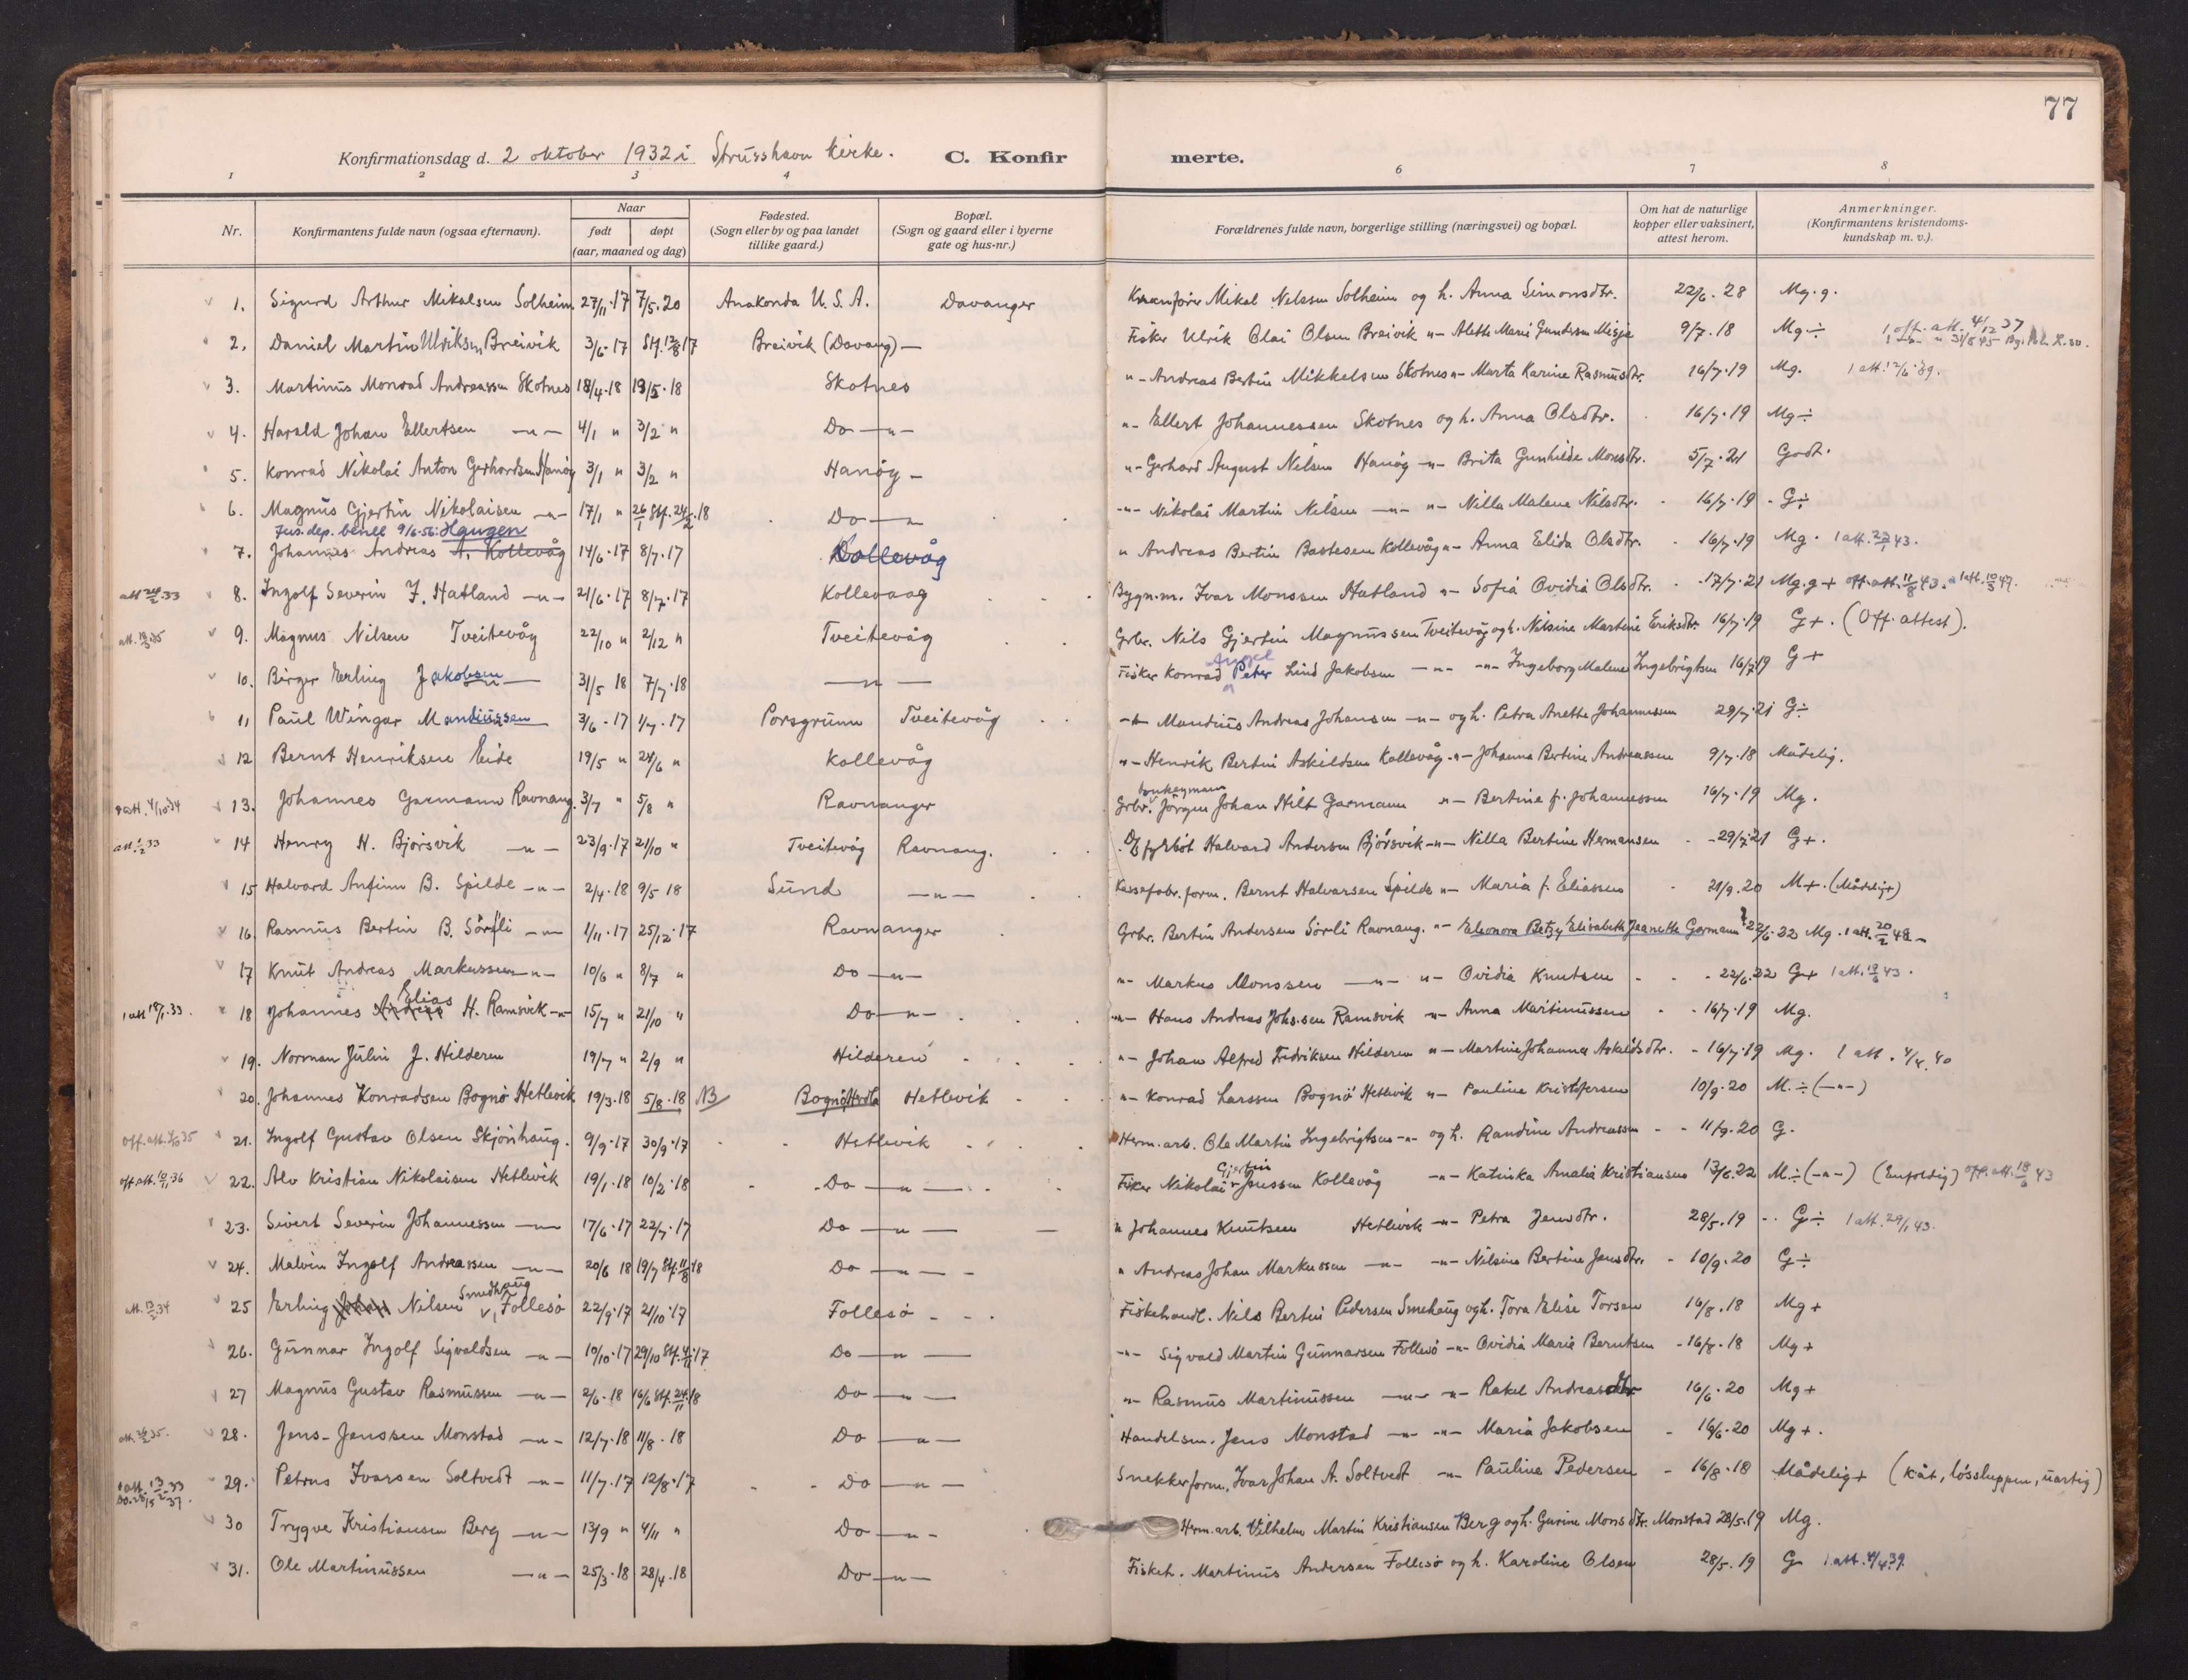 77
Konfirmationsdag d. 2 oktober 1932 i Strusshavn kirke. C. Konfir merte.
1 2 3 4 6 7 8
Nr. Konfirmantens fulde navn (ogsaa efternavn). Naar født døpt (aar, maaned og dag) Fødested. (Sogn eller by og paa landet tillike gaard.) Bopæl. (Sogn og gaard eller i byerne gate og hus-nr.) Forældrenes fulde navn, borgerlige stilling (næringsvei) og bopæl. Om hat de naturlige kopper eller vaksinert, attest herom. Anmerkninger. (Konfirmantens kristendoms-kundskap m. v.).
1. Sigurd Arthur Mikalsen Solheim 27/11.17 7/5.20 Anakonda U.S.A. Davanger Mikal Nelssen Solheim og h. Anna Simonsdtr. 22/6.28 Mg.g.
2. Daniel Martin Ulriksen Breivik 3/6.17 Stf. 12/8 17 Breivik (Davang) — Fisker Ulrik Olai Olsen Breivik -"- Alette Marie Gundersen Misje 9/7.18 Mg ÷ 1 off. att. 4/12 37
3. Martinus Monrad Andreassen Skotnes 18/4.18 19/5.18 Skotnes "- Andreas Bertin Mikkelsen Skotnes -"- Marta Karine Rasmusdtr. 16/7.19 Mg. 1 att. 12/6.39.
4. Harald Johan Ellertsen —"— 4/1 " 3/2 " Do —"— "- Ellert Johannessen Skotnes og h. Anna Olsdtr. 16/7.19 Mg ÷
5. Konrad Nikolai Anton Gerhardsen Hanøy 3/1 " 3/2 " Hanöy — "- Gerhard August Nilsen Hanöy -"- Brita Gunhilde Monsdtr. 5/7.21 Godt.
6. Magnus Gjertin Nikolaisen —"— 17/1 " 26/1 Stf. 24/2.18 Do —"— -"- Nikolai Martin Nilsen —"— "- Nilla Malene Nilsdtr. 16/7.19 G ÷
Jus. dep. bevill 9/6-56: Haugen
7. Johannes Andreas A. Kollevåg 14/6.17 8/7.17 Kollevåg " Andreas Bertin Bastesen Kollevåg -"- Anna Elida Olsdtr. 16/7.19 Mg. 1 att. 22/1 43.
att 24/2 33 8. Ingolf Severin I. Hatland —"— 21/6.17 8/7.17 Kollevaag Bygn.m. Ivar Monssen Hatland "- Sofia Ovidia Olsdtr. 17/7.21 Mg.g + off. att. 11/8 43. 1 att. 10/3 47.
att. 19/3 35 9. Magnus Nilsen Tveitevåg 22/10 " 2/12 " Tveitevåg Grbr. Nils Gjertin Magnussen Tveitevåg og h. Nilsine Martine Eriksdtr. 16/7.19 G+. (Off. attest).
10. Birger Erling Jakobsen 31/5 18 7/7.18 —"— Fisker Konrad Peter Lind Jakobsen —"— -"- Ingeborg Malene Ingebrigtsen 16/7 19 G+
11 Paul Wingar Mandiussen 3/6.17 1/7.17 Porsgrunn Tveitevåg -"- Mandius Andreas Johansen —"— og h. Petra Anette Johannessen 29/7.21 G ÷
12 Bernt Henriksen Eide 19/5 " 24/6 " Kollevåg "- Henrik Bertin Askildsen Kollevåg -"- Johanna Bertine Andreassen 9/7.18 Mådelig.
att. 4/10 34 13. Johannes Garmann Ravnang. 3/7 " 5/8 " Ravnanger Grbr. donkeymann Jörgen Johan Hilt Garmann "- Bertine f. Johannessen 16/7.19 Mg.
att. 1/2 33 14 Henry H. Bjørsvik —"— 23/9.17 21/10 " Tveitevåg Ravnang. fyrböt Halvard Andersen Bjørsvik -"- Nilla Bertine Hermansen 29/7.21 G+.
15 Halvard Anfinn B. Spilde —"— 2/4.18 9/5 18 Sund —"— Kassefabr. form. Bernt Halvarsen Spilde "- Maria f. Eliassen 21/9.20 M+. (Mådelig+)
16. Rasmus Bertin B. Sörli —"— 1/11.17 25/12.17 Ravnanger Grbr. Bertin Andersen Sörli Ravnang. "- Eleonora Betzy Elisabeth Jeanette Garmann 22/6.22 Mg. 1 att. 20/2 48
17 Knut Andreas Markussen —"— 10/6 " 8/7 " Do —"— "- Markus Monssen —"— "- Ovidia Knutsen 22/6.22 G+ 1 att. 13/8 43.
1 att 18/1.33. 18 Johannes Andreas Elias H. Ramsvik —"— 15/7 " 21/10 " Do —"— "- Hans Andreas Johs.sen Ramsvik -"- Anna Martinussen 16/7.19 Mg.
19. Norman Julin J. Hilderen 19/7 " 2/9 " Hilderen "- Johan Alfred Fredriksen Hilderen "- Martine Johanna Askildsdtr. 16/7.19 Mg. 1 att. 4/4.40
20. Johannes Konradsen Bognö Hetlevik 19/3.18 5/8.18 NB Bognö, Herdla Hetlevik "- Konrad Larssen Bognö Hetlevik "- Pauline Kristofersen 10/9.20 M. ÷ (-"-)
21. Ingolf Gustav Olsen Skjönhaug. 9/9.17 30/9.17 Hetlevik Herm.arb. Ole Martin Ingebrigtsen -"- og h. Randine Andreassen 11/9.20 G.
off. att. 10/11.36 22. Alv Kristian Nikolaisen Hetlevik 19/1.18 10/2.18 Do —"— Fisker Nikolai Gjertin Jenssen Kollevåg -"- Katinka Amalia Kristiansen 13/6.22 M. ÷ (-"-) (Enfoldig) off. att. 18/6 43
23. Sivert Severin Johannessen —"— 17/6.17 22/7.17 Do —"— " Johannes Knutsen Hetlevik -"- Petra Jensdtr. 28/5.19 G ÷ 1 att. 29/1 43.
24. Malvin Ingolf Andreassen —"— 20/6 18 19/7 Stf. 11/8 18 Do —"— " Andreas Johan Markussen —"— -"- Nilsine Bertine Jensdtr. 10/9.20 G ÷
att. 34 25 Erling Johan Nilsen Smedhaug, Follesö 22/9.17 21/10.17 Follesö Fiskehandl. Nils Bertin Pedersen Smehaug og h. Tora Elise Torsen 16/8.18 Mg+
26. Gunnar Ingolf Sigvaldsen —"— 10/10.17 29/10 Stf. 4/11.17 Do —"— -"- Sigvald Martin Gunnarsen Follesö -"- Ovidia Marie Berntsen 16/8.18 Mg+
27 Magnus Gustav Rasmussen —"— 2/6.18 16/6 Stf. 24/11.18 Do —"— "- Rasmus Martinussen —"— "- Rakel Andreasdtr 16/6.20 Mg+
28. Jens Jenssen Monstad —"— 12/7.18 11/8.18 Do —"— Handelsm. Jens Monstad —"— -"- Maria Jakobsen 16/6.20 Mg+.
29. Petrus Ivarsen Soltvedt —"— 11/7.17 12/8.17 Do —"— Snekkerform. Ivar Johan A. Soltvedt -"- Pauline Pedersen 16/8.18 Mådelig+ (Kåt, lössluppen, uartig)
30 Trygve Kristiansen Berg —"— 13/9 " 4/11 " Do —"— Herm.arb. Vilhelm Martin Kristiansen Berg og h. Gurine Monsdtr. Monstad 28/5.19 Mg.
31. Ole Martinussen —"— 25/3.18 28/4.18 Do —"— Fiskeh. Martinus Andersen Follesö og h. Karoline Olsen 28/5.19 G 1 att. 4/4 39.